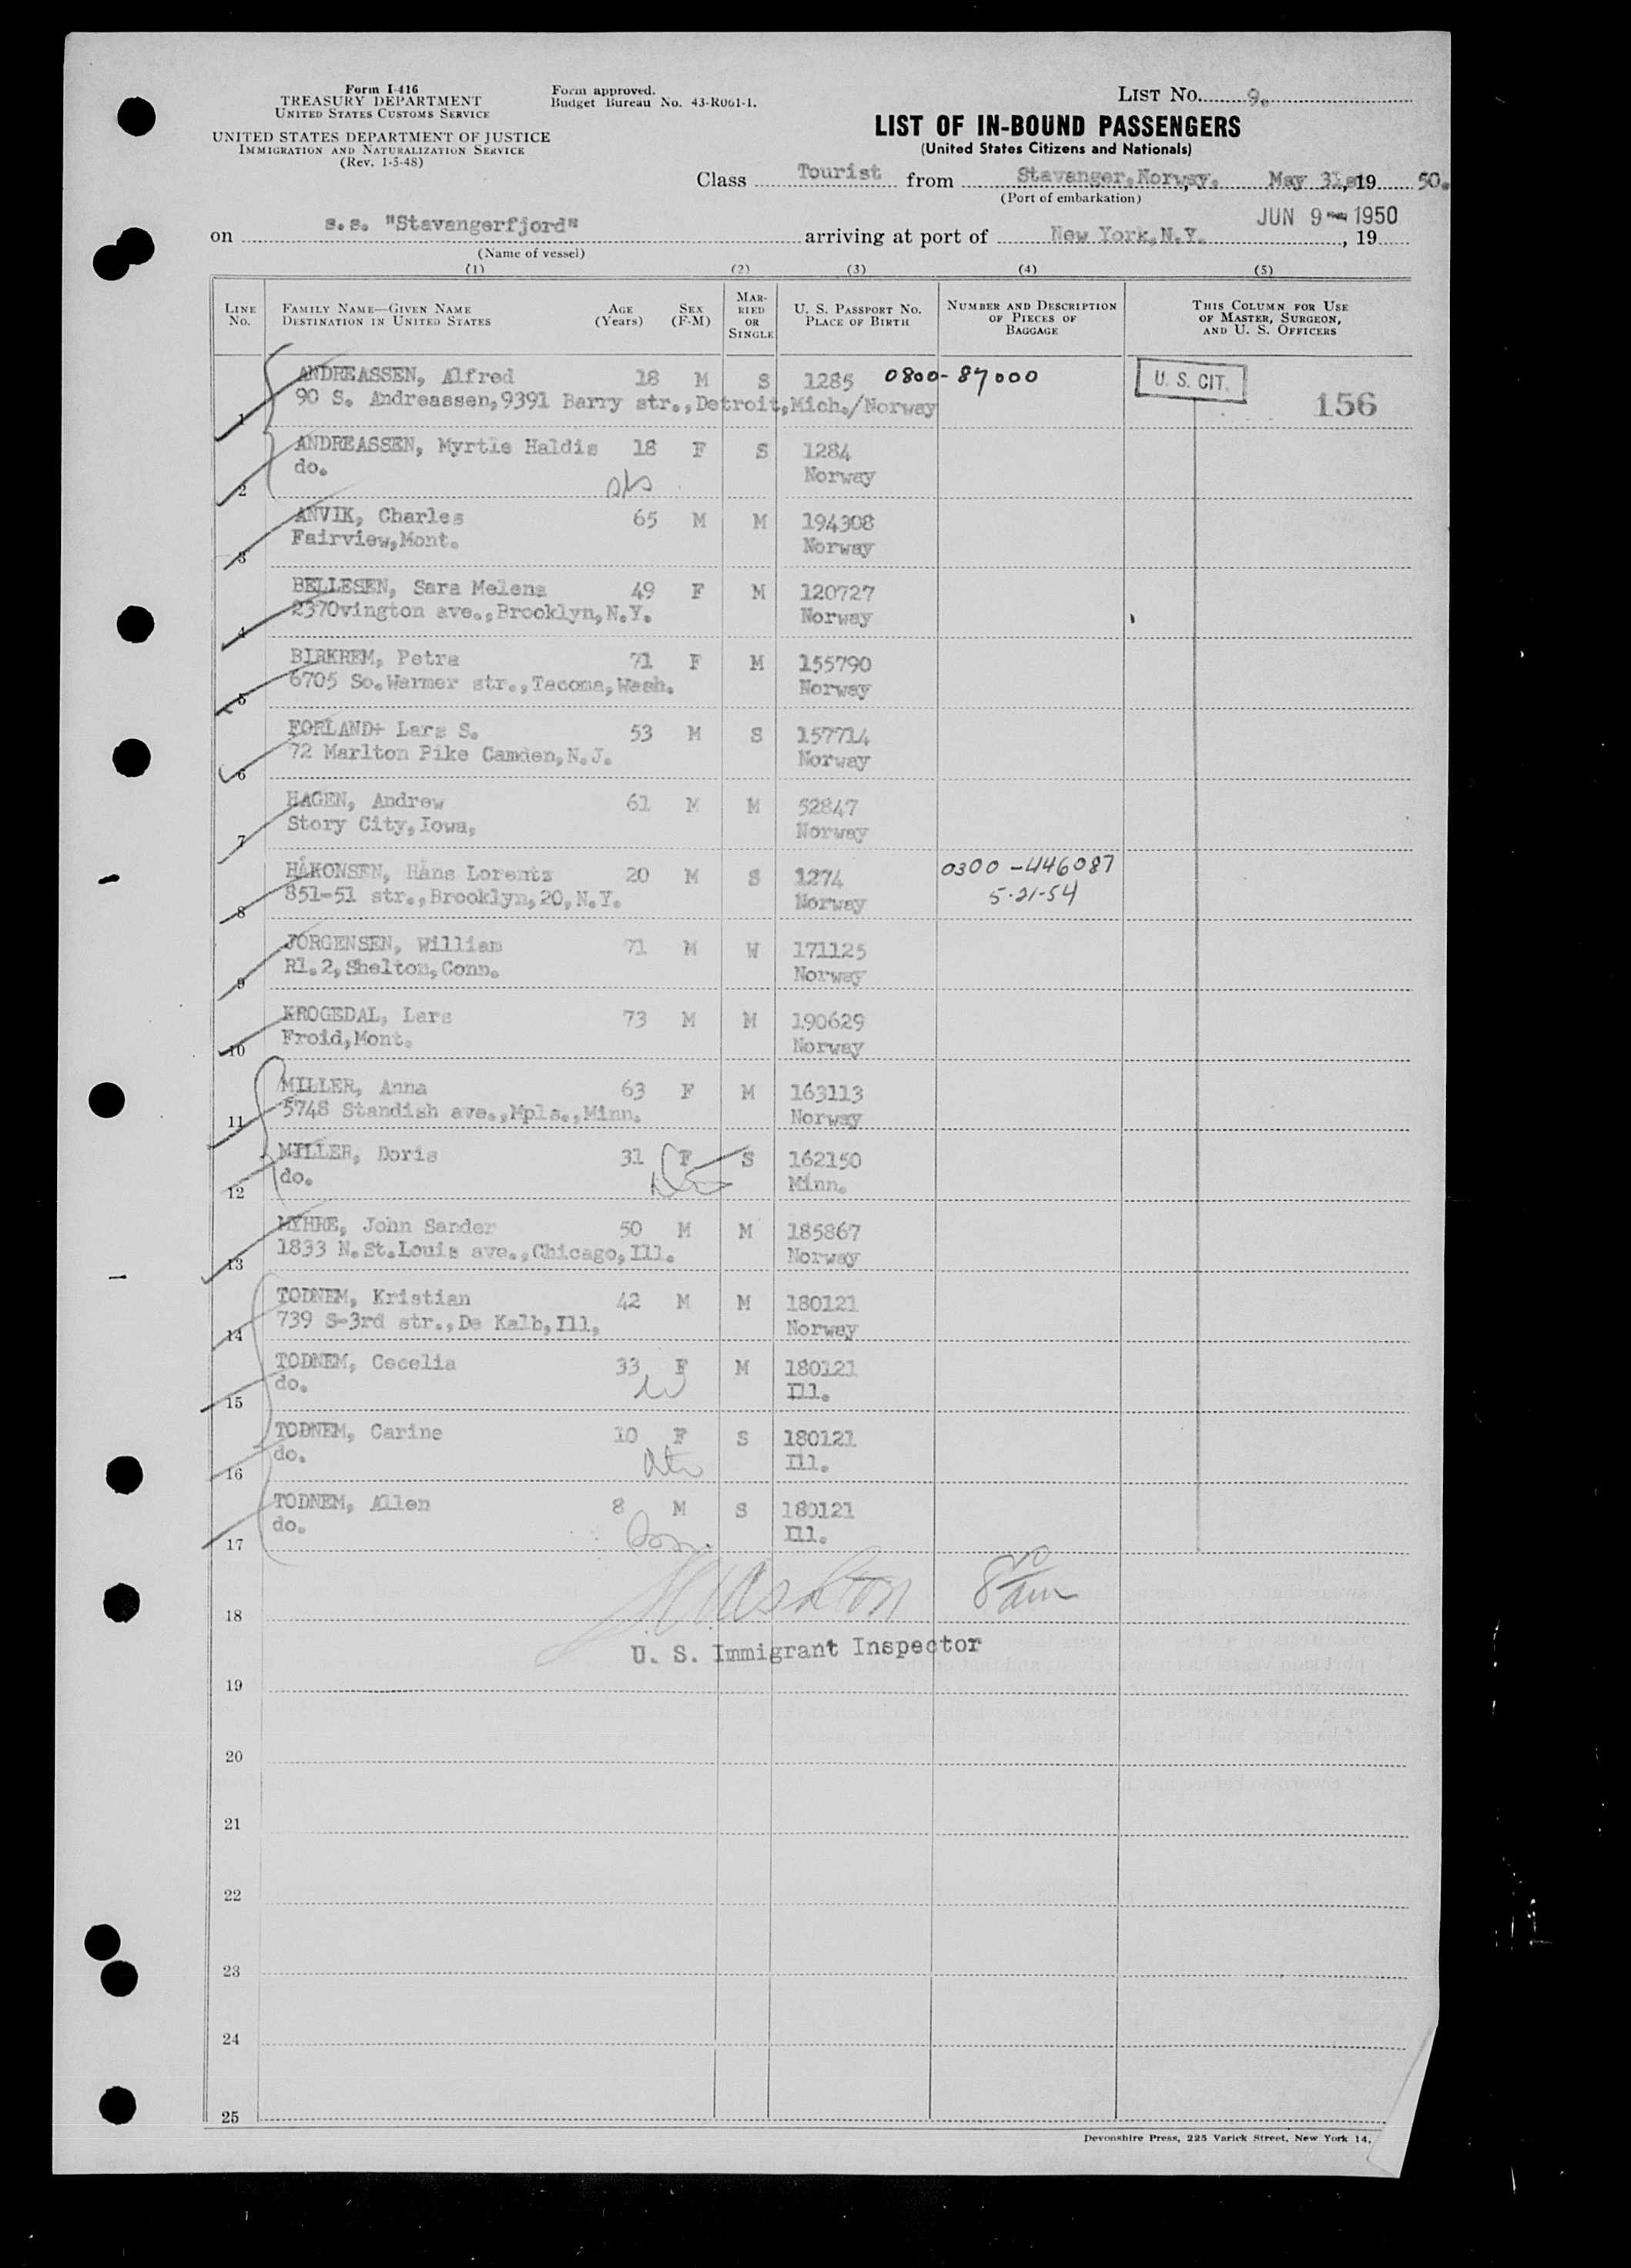 Form I-416
TREASURY DEPARTMENT
UNITED STATES CUSTOMS SERVICE
UNITED STATES DEPARTMENT OF JUSTICE
IMMIGRATION AND NATURALIZATION SERVICE
(Rev. 1-5-48)
Form approved.
Budget Bureau No. 43-R061-1.
LIST No. 9.
LIST OF IN-BOUND PASSENGERS
(United States Citizens and Nationals)
Class Tourist from Stavanger, Norway. May 31, 1950.
(Port of embarkation)
JUN 9 1950
on s.s. "Stavangerfjord" arriving at port of New York, N.Y. , 19
(Name of vessel)
(1) (2) (3) (4) (5)
LINE No. FAMILY NAME—GIVEN NAME DESTINATION IN UNITED STATES AGE (Years) SEX (F-M) MARRIED OR SINGLE U. S. PASSPORT NO. PLACE OF BIRTH NUMBER AND DESCRIPTION OF PIECES OF BAGGAGE THIS COLUMN FOR USE OF MASTER, SURGEON, AND U. S. OFFICERS
1 ANDREASSEN, Alfred 18 M S 1285 0800-87000 U. S. CIT. 156
90 S. Andreassen,9391 Barry str.,Detroit,Mich./Norway
2 ANDREASSEN, Myrtle Haldis 18 F S 1284
do. Norway
3 ANVIK, Charles 65 M M 194308
Fairview,Mont. Norway
4 BELLESEN, Sara Melena 49 F M 120727
2370vington ave.,Brooklyn,N.Y. Norway
5 BIRKREM, Petra 71 F M 155790
6705 So.Warmer str.,Tacoma,Wash. Norway
6 FORLAND+ Lars S. 53 M S 157714
72 Marlton Pike Camden,N.J. Norway
7 HAGEN, Andrew 61 M M 52847
Story City,Iowa, Norway
8 HÅKONSEN, Håns Lorentz 20 M S 1274 0300-446087
851-51 str.,Brooklyn,20,N.Y. Norway 5-21-54
9 JORGENSEN, William 71 M W 171125
R1.2,Shelton,Conn. Norway
10 KROGEDAL, Lars 73 M M 190629
Froid,Mont. Norway
11 MILLER, Anna 63 F M 163113
5748 Standish ave.,Mpls.,Minn. Norway
12 MILLER, Doris 31 F S 162150
do. Minn.
13 MYHRE, John Sander 50 M M 185867
1833 N.St.Louis ave.,Chicago,Ill. Norway
14 TODNEM, Kristian 42 M M 180121
739 S-3rd str.,De Kalb,Ill, Norway
15 TODNEM, Cecelia 33 F M 180121
do. Ill.
16 TODNEM, Carine 10 F S 180121
do. Ill.
17 TODNEM, Allen 8 M S 180121
do. Ill.
18
U. S. Immigrant Inspector
19
20
21
22
23
24
25
Devonshire Press, 225 Varick Street, New York 14,